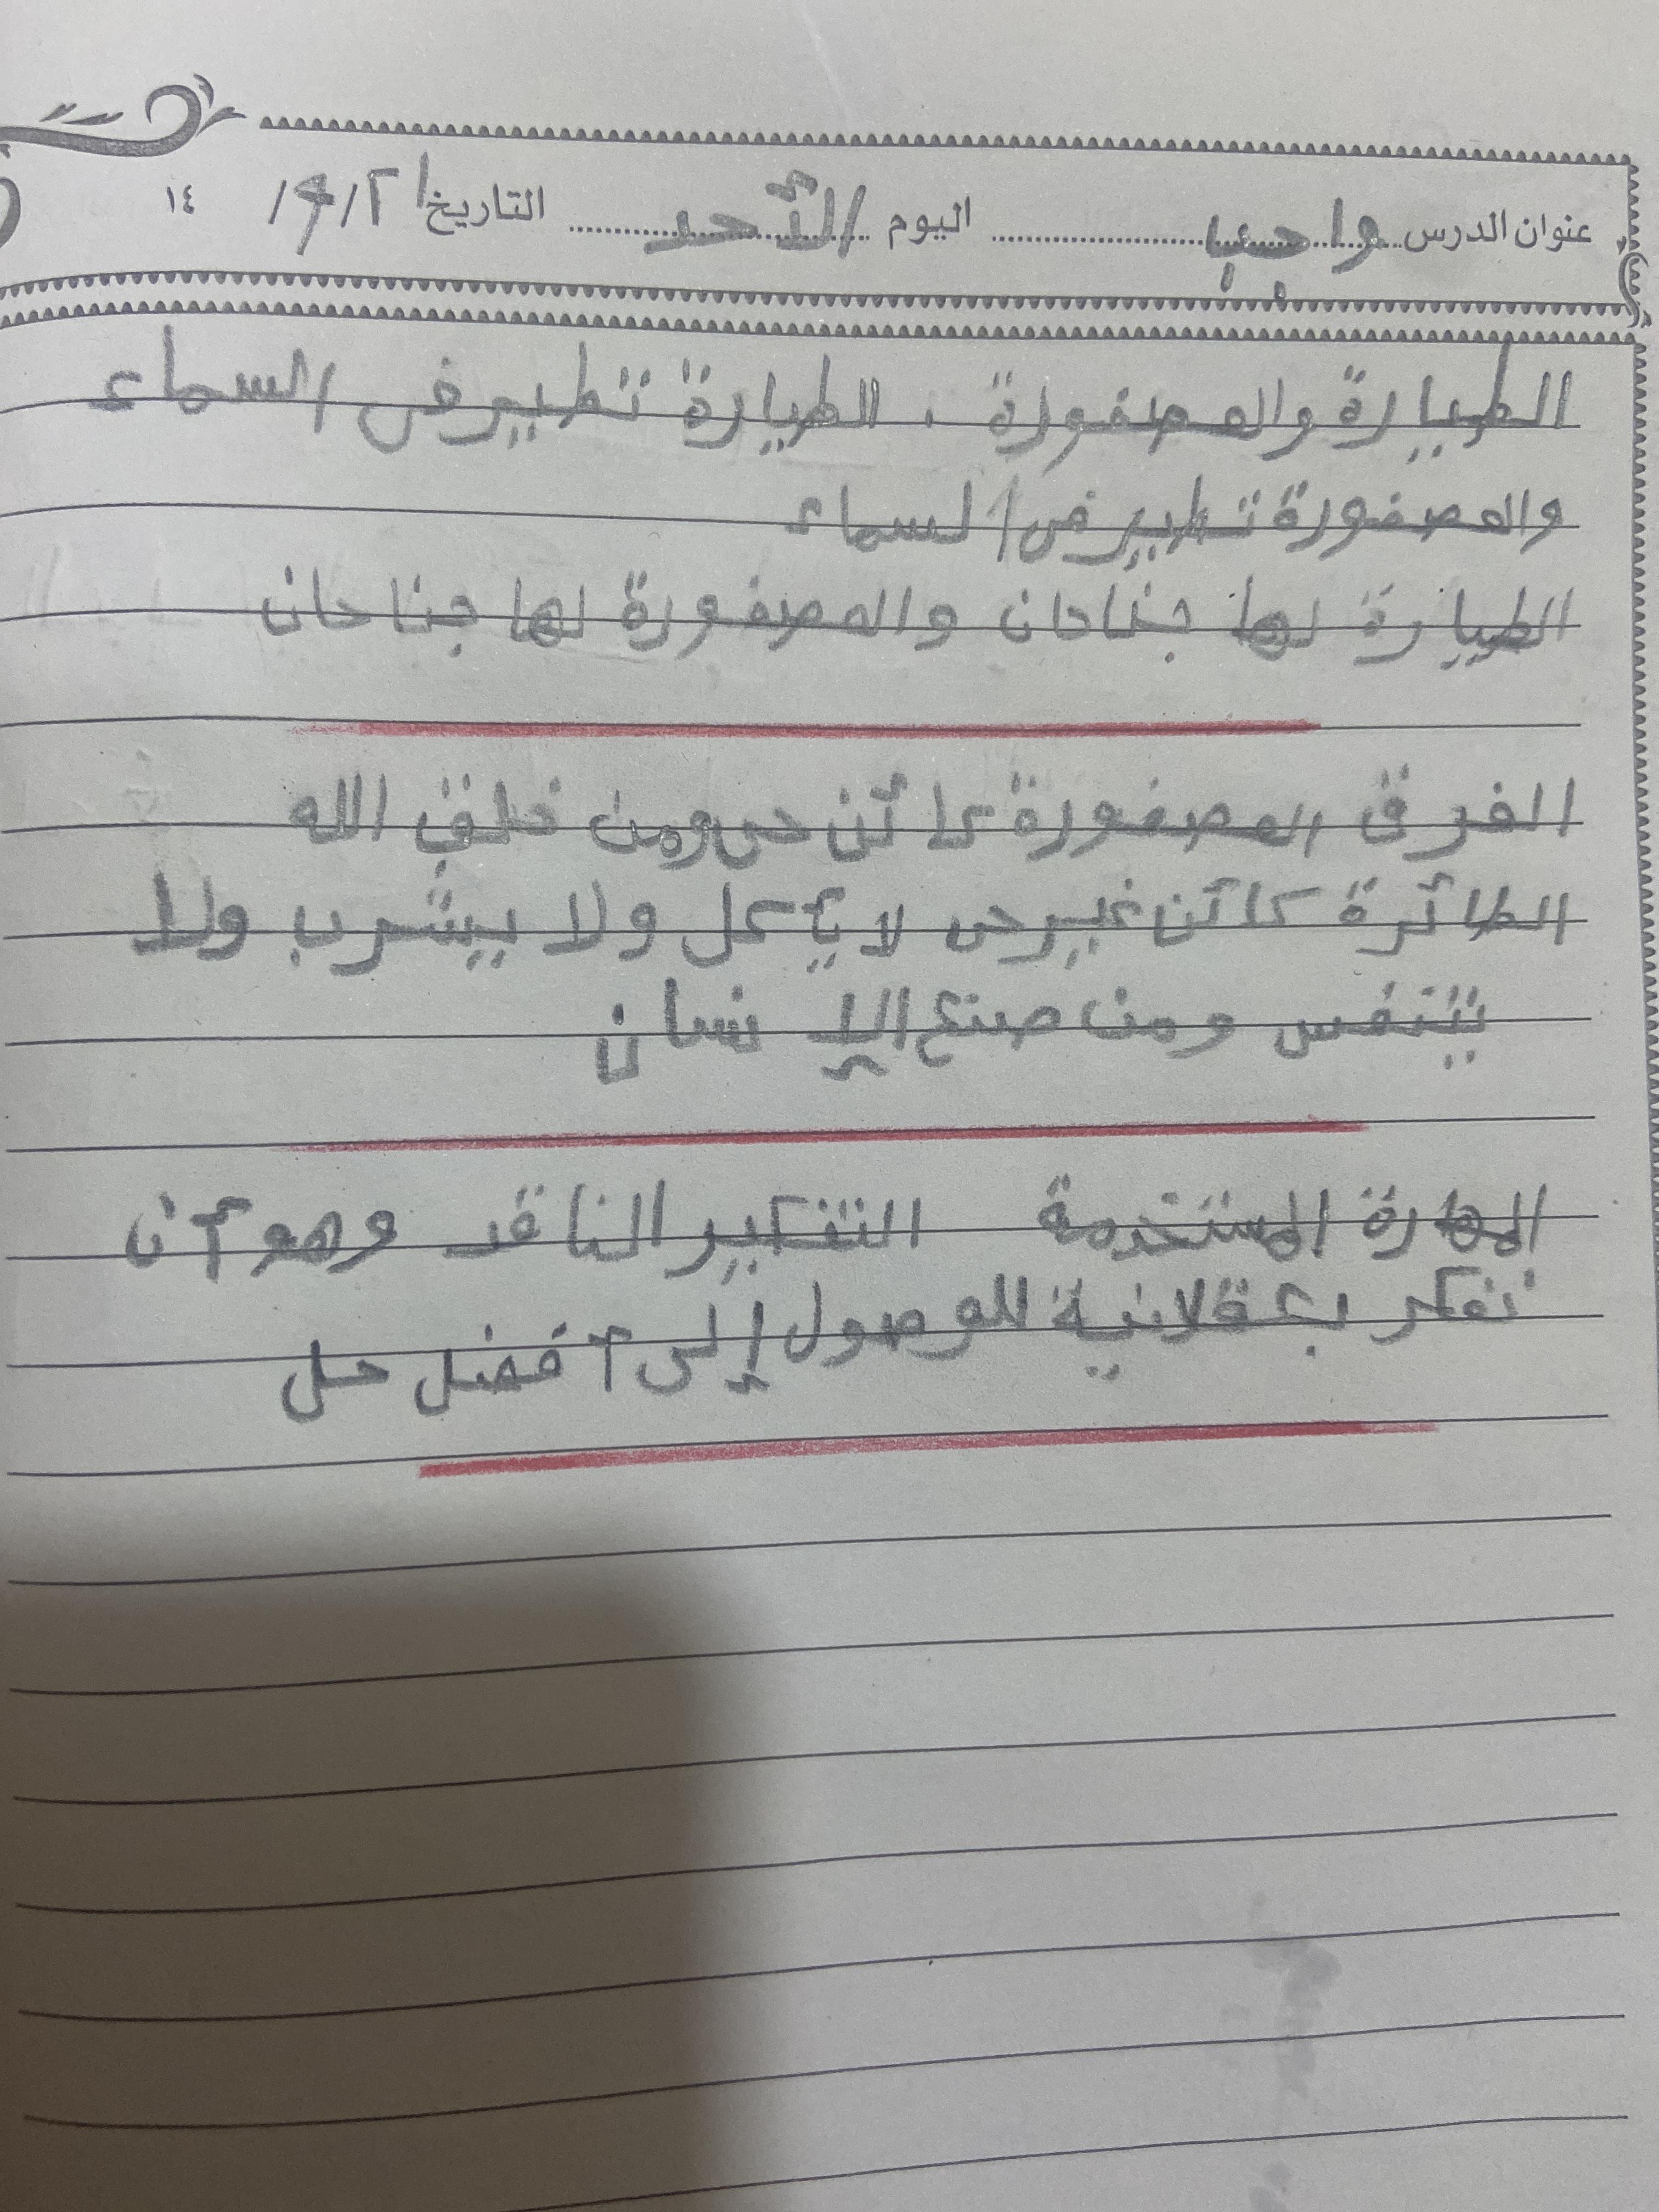 عنوان الدرس واجب اليوم الأحد التاريخ ٢١/٩/ ١٤
الطيارة والعصفورة . الطيارة تطير في السماء
والعصفورة تطير في السماء
الطيارة لها جناحان والعصفورة لها جناحان
الفرق العصفورة كائن حي ومن خلق الله
الطائرة كائن غير حي لا يأكل ولا يشرب ولا
يتنفس ومن صنع الإنسان
المهارة المستخدمة التفكير الناقد وهو أن
نفكر بعقلانية للوصول إلى أفضل حل